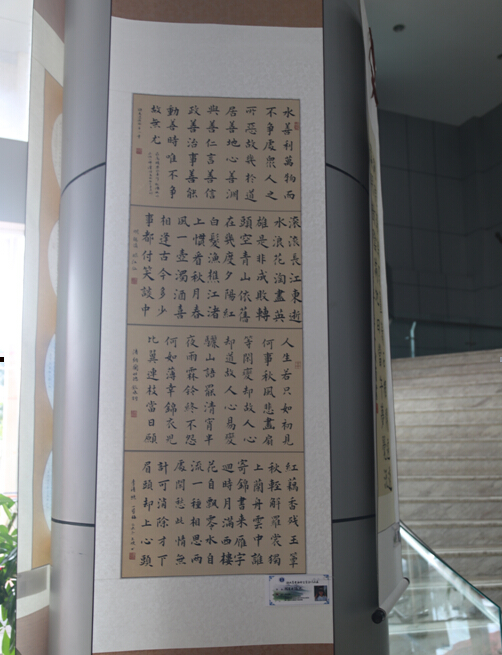 水善利萬物而
不爭處衆人之
所惡故幾於道
居善地心善淵
與善仁言善信
政善治事善能
動善時唯不爭
故無尤
滚滚長江東逝
水浪花淘盡英
雄是非成敗轉
頭空青山依舊
在幾度夕陽紅
白髮漁樵江渚
上慣看秋月春
風一壺濁酒喜
相逢古今多少
事都付笑談中
人生若只如初見
何事秋風悲畫扇
等閑變却故人心
却道故人心易變
驪山語罷清宵半
夜雨霖鈴終不怨
何如薄幸錦衣兒
比翼連枝當日願
紅藕香殘玉簟
秋輕解羅裳獨
上蘭舟雲中誰
寄錦書來雁字
迴時月滿西樓
花自飄零水自
流一種相思兩
處閑愁此情無
計可消除才下
眉頭却上心頭